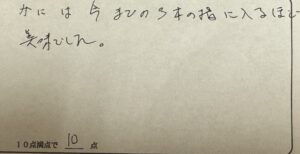 かには今までの3本の指に入るほど
美味でした。
10点満点で 10 点